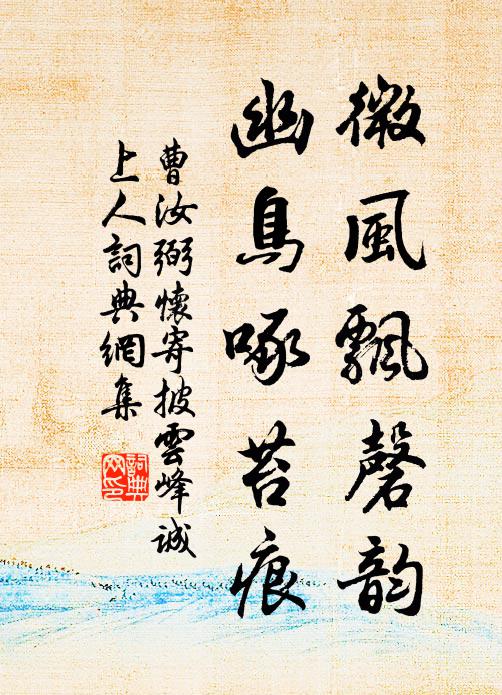 微風飄磬韵
幽鳥啄苔痕
曹汝弼懷寄披雲峰誠
上人詞典網集
詞典
网印